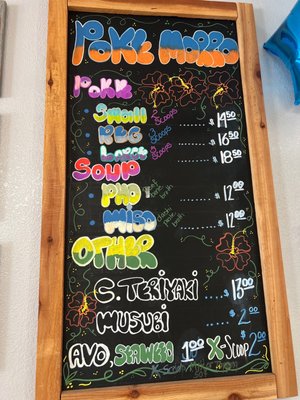 POKE MORRO
POKE
Small Scoops ....$ 14⁵⁰
REG Scoops ....$ 16⁵⁰
Large Scoops ....$ 18⁵⁰
SOUP
PHO ....$ 12⁰⁰
MISO ....$ 12⁰⁰
OTHER
C. TERIYAKI .....$ 13⁰⁰
MUSUBI .....$ 2⁰⁰
AVO, SEAWEED 1⁰⁰ X-Scoop 2⁰⁰